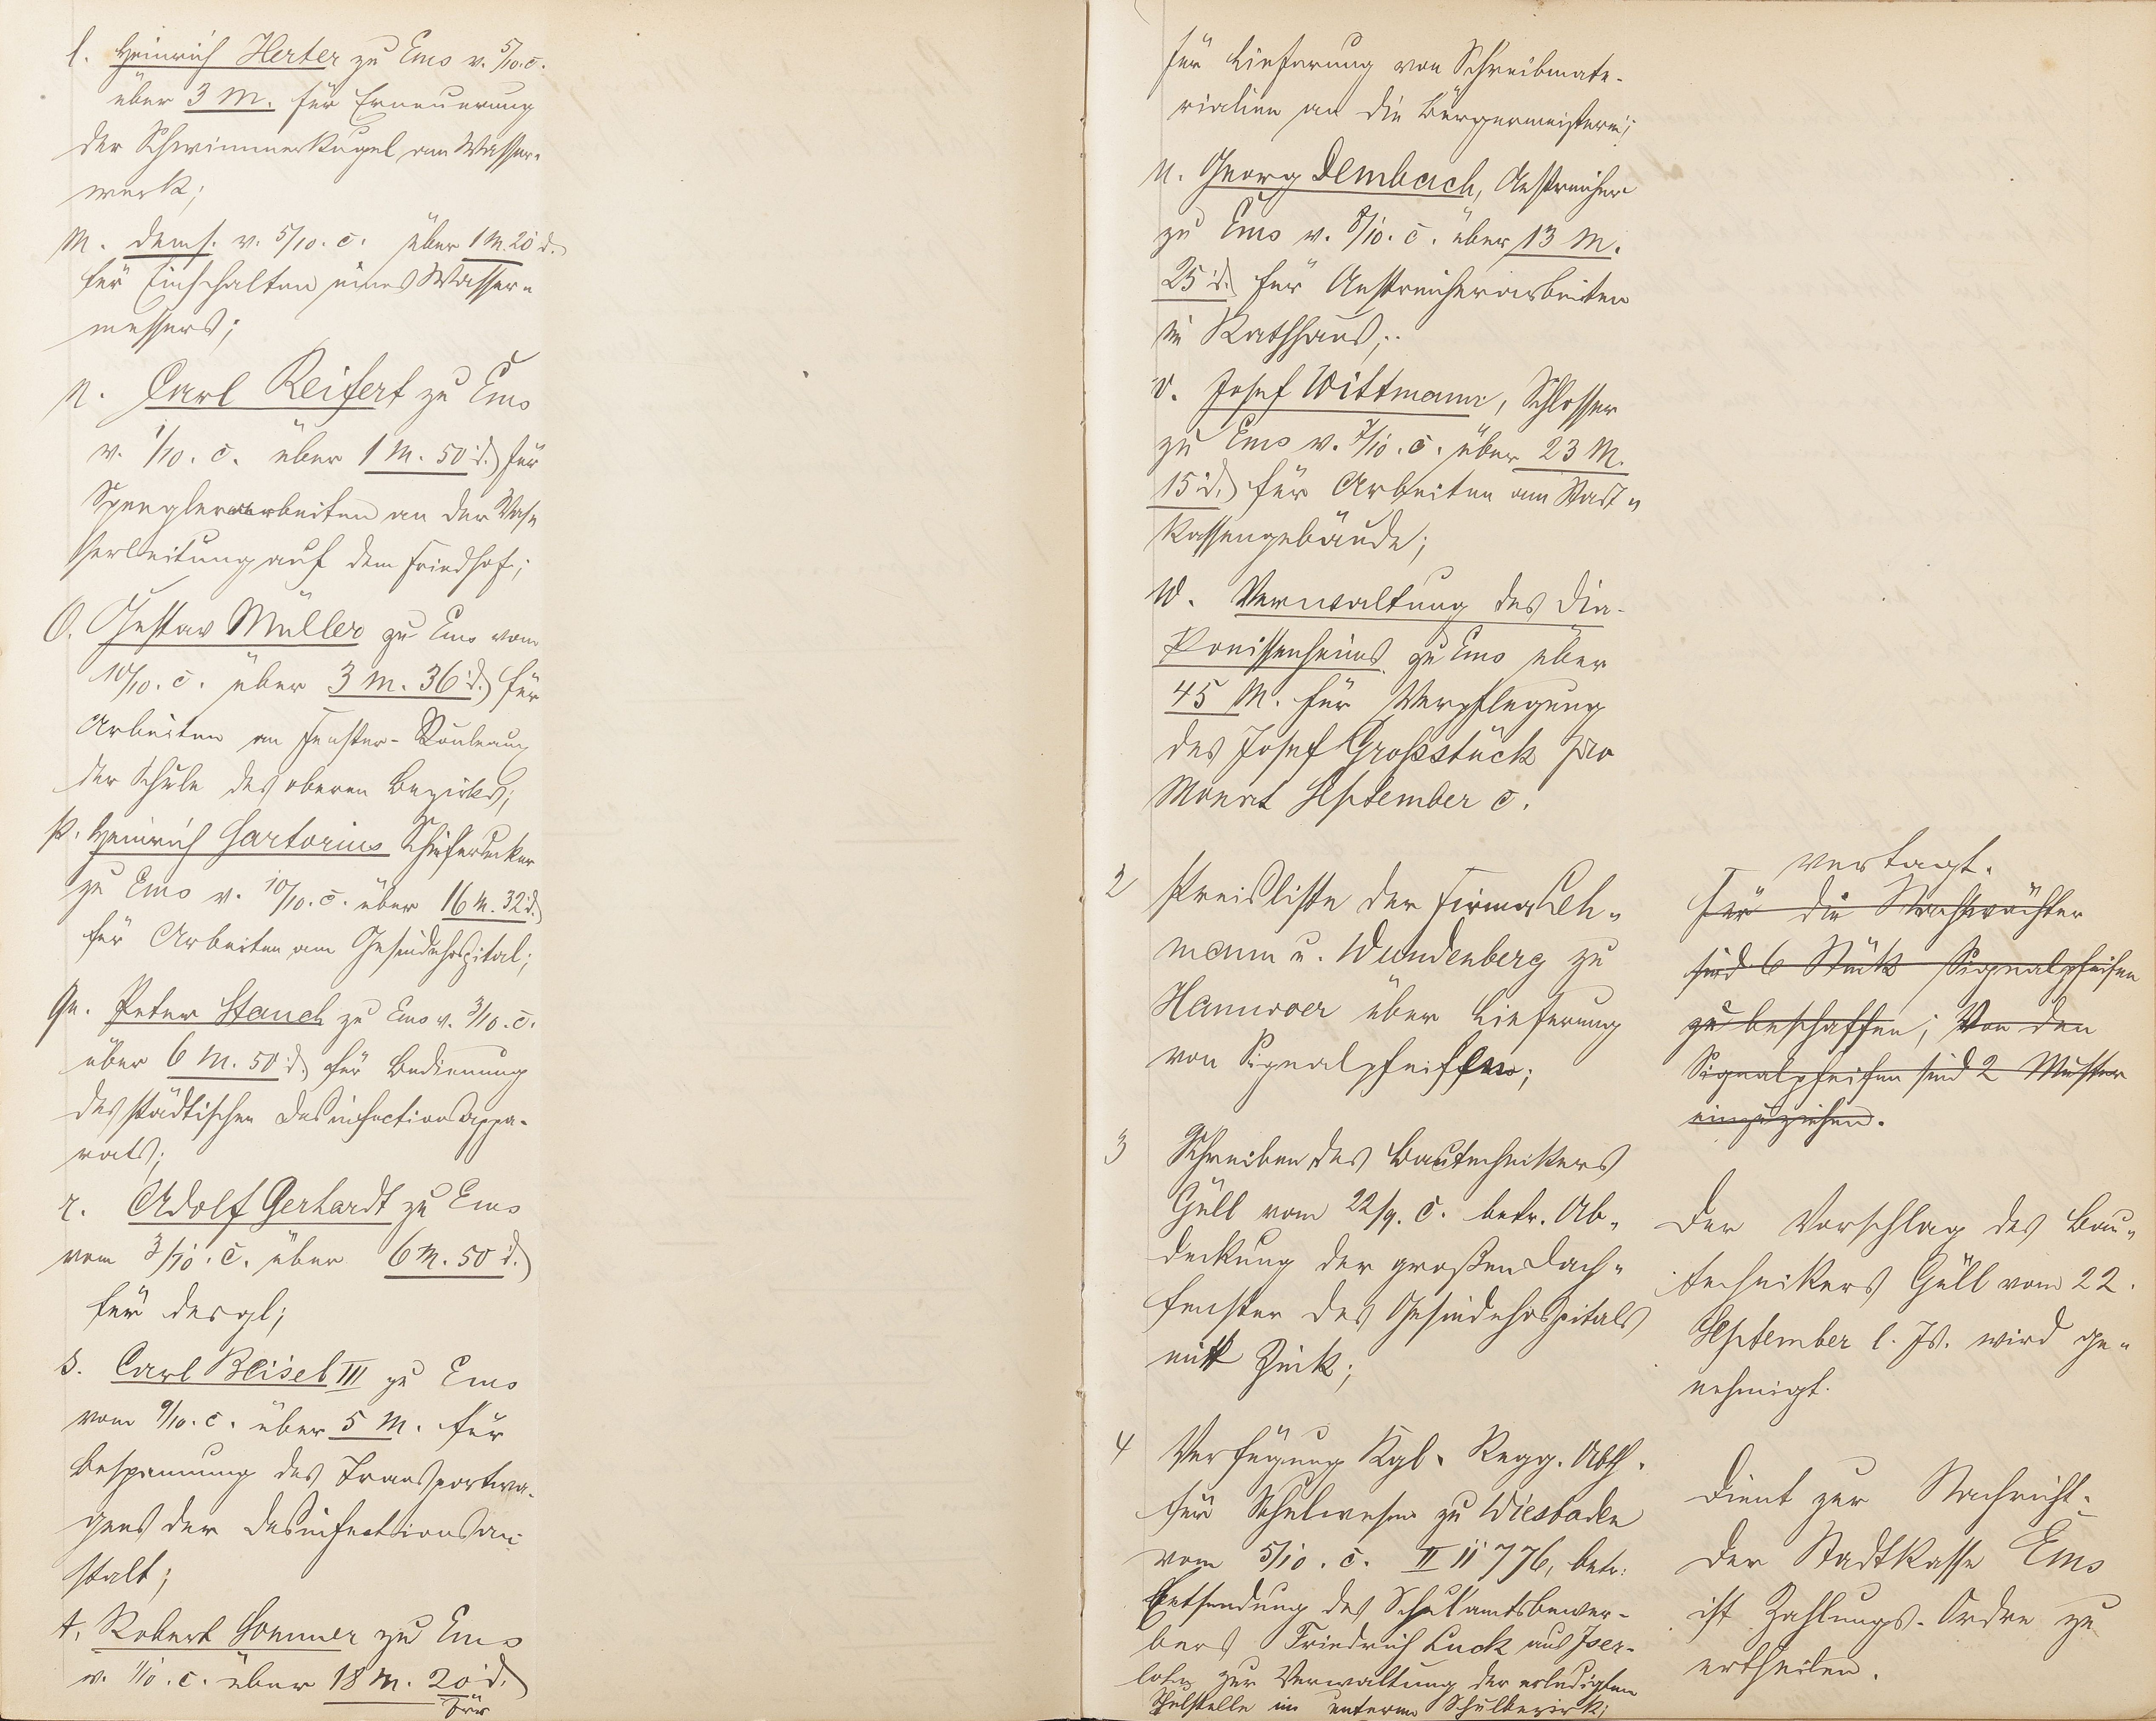 l. Heinrich Herter zu Ems v. 5/10. c.
über 3 M. für Erneuerung
der Schwimmerkugel am Wasser-
werk;
m. dems. v. 5/10. c. über 1 M. 20 d.
für Einschalten eines Wasser-
messers;
n. Carl Reifert zu Ems
v. 1/10. c. über 1 M. 50 d. für
Spenglerarbeiten an der Was-
serleitung auf dem Friedhof;
O. Gustav Müller zu Ems vom
10/10. c. über 3 M. 36 d. für
Arbeiten an Fenster-Rouleaux
der Schule des oberen Bezirks;
p. Heinrich Sartorius Schieferdecker
zu Ems v. 10/10. c. über 16 M. 32 d.
für Arbeiten am Gesindehospital;
qu. Peter Stauch zu Ems v. 3/10. c.
über 6 M. 50 d. für Bedienung
des städtischen Desinfectionsappa-
rats;
r. Adolf Gerhardt zu Ems
vom 3/10. c. über 6 M. 50 d.
für desgl;
s. Carl Beisel III zu Ems
vom 9/10. c. über 5 M. für
Bespannung des Transportwa-
gens der Desinfectionsan-
stalt;
t. Robert Sommer zu Ems
v. 1/10. c. über 18 M. 20 d.
für
für Lieferung von Schreibmate-
rialien an die Bürgermeisterei;
u. Georg Dembach, Anstreicher
zu Ems v. 8/10. c. über 13 M.
25 d. für Anstreicherarbeiten
im Rathhaus;
v. Josef Wittmann, Schlosser
zu Ems v. 7/10. c. über 23 M.
15 d. für Arbeiten am Stadt-
kassengebäude;
w. Verwaltung des Dia-
konissenheims zu Ems über
45 M. für Verpflegung
des Josef Großstück pro
Monat September c.
2 Preisliste der Firma Leh-
mann u. Wundenberg zu
Hannover über Lieferung
von Signalpfeiffen;
vertagt.
Für die Nachtwächter
sind 6 Stück Signalpfeifen
zu beschaffen; Von den
Signalpfeifen sind 2 Muster
einzuziehen.
3 Schreiben des Bautechnikers
Güll vom 22/9. c. betr. Ab-
deckung der großen Dach-
fenster des Gesindehospitals
mit Zink;
Der Vorschlag des Bau-
technikers Güll vom 22.
September l. Js. wird ge-
nehmigt.
4 Verfügung Kgl. Regg. Abth.
für Schulwesen zu Wiesbaden
vom 5/10. c. II 11776, betr:
Entsendung des Schulamtsbewer-
bers Friedrich Luck aus Iser-
lohn zur Verwaltung der erledigten
Schulstelle im unteren Schulbezirk;
Dient zur Nachricht.
Der Stadtkasse Ems
ist Zahlungs-Ordre zu
ertheilen.